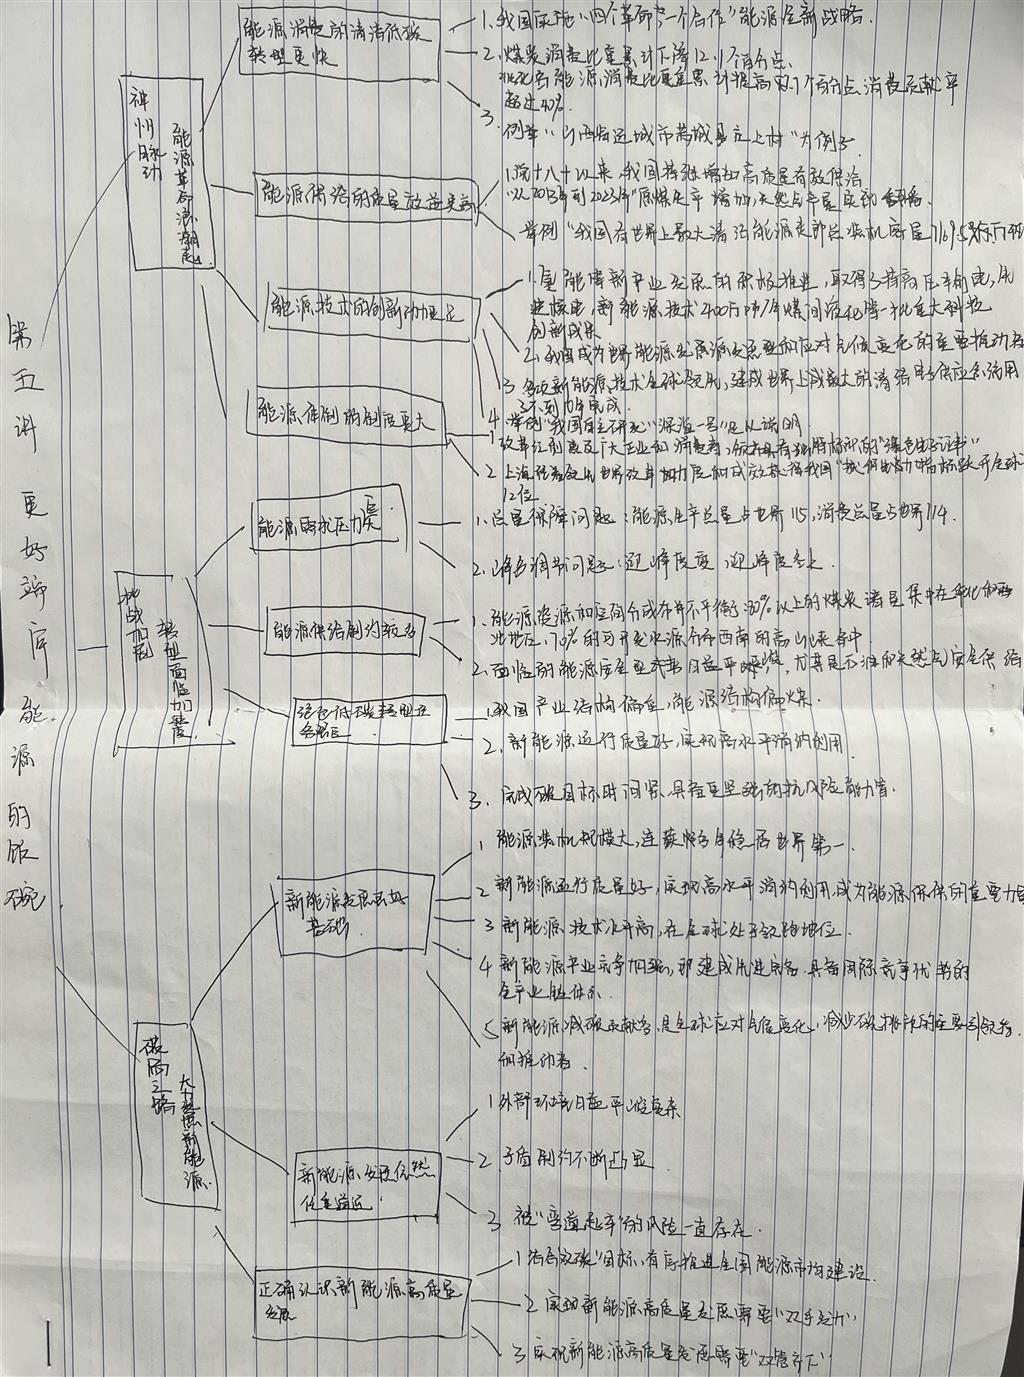 第五讲 更好端牢能源的饭碗
神州脉动
能源革命浪潮起
能源消费的清洁低碳
转型更快
1.我国实施"四个革命一个合作"能源全新战略.
2.煤炭消费比重累计下降12.1个百分点
非化石能源消费比重累计提高 个百分点 消费贡献率
超过40%.
3.例举"山西省运城市芮城县庄上村"为例子
能源供给的质量效益更高
1.党十八大以来,我国持续增加高质量有效供给
以2013年到2023年"原煤生产增加,天然气产量实现翻番
举例"我国有世界上最大清洁能源走廊总装机容量7169.5万千瓦
能源技术的创新动力更足
1.氢能等新产业发展的积极推进,取得了特高压输电,先
进核电,新能源技术400万吨/年煤间液化等一批重大科技
创新成果
2.我国成为世界能源发展 和应对气候变化的重要推动者
3.多项新能源技术全球领先,建成世界上最大的清洁 供应
4.举例"我国自主研发"深海一号"足以说明
能源体制的创度更大
1 改革红利惠及广大企业和消费者, 的"绿色电子证书"
2 上海 世界 改革 力度和成效 我国"获得电力"指标跃升全球
12位
挑战加剧
转型面临加紧
能源需求压力大
1.总量保障问题:能源生产总量占世界1/5,消费总量占世界1/4.
2.峰谷调节问题:迎峰度夏,迎峰度冬上
能源供给制约较多
1.能源资源和空间分成布并不平衡,80%以上的煤炭 集中在华北和西
北地区.70%的可开发水源分布西南的高山峡谷中
2.面临的能源安全 日益严峻, 尤其是石油和天然气安全供给
绿色低碳转型任
务艰巨
1.我国产业结构偏重,能源结构偏煤.
2.新能源运行质量好,实现高水平消纳利用
3.完成双碳目标时间紧,具备更坚强的抗风险能力等.
破局之路
大力发展新能源
新能源发展良好
基础
1 能源装机规模大,连续多年稳居世界第一.
2 新能源运行质量好,实现高水平消纳利用,成为能源保供的重要力量
3 新能源技术水平高,在全球处于领跑地位.
4 新能源产业竞争加强,即建成先进完备.具备国际竞争优势的
全产业链体系.
5 新能源减碳贡献多,是全球应对气候变化,减少碳排放的主要引领者
和推动者.
新能源发展依然
任重道远
1 外部环境日益严峻复杂
2 矛盾制约不断凸显
3 被"弯道超车"的风险一直存在.
正确认识新能源高质量
发展
1 结合双碳"目标,有序推进全国能源市场建设.
2 实现新能源高质量发展需要"双手发力"
3 实现新能源高质量发展需要"双管齐下"